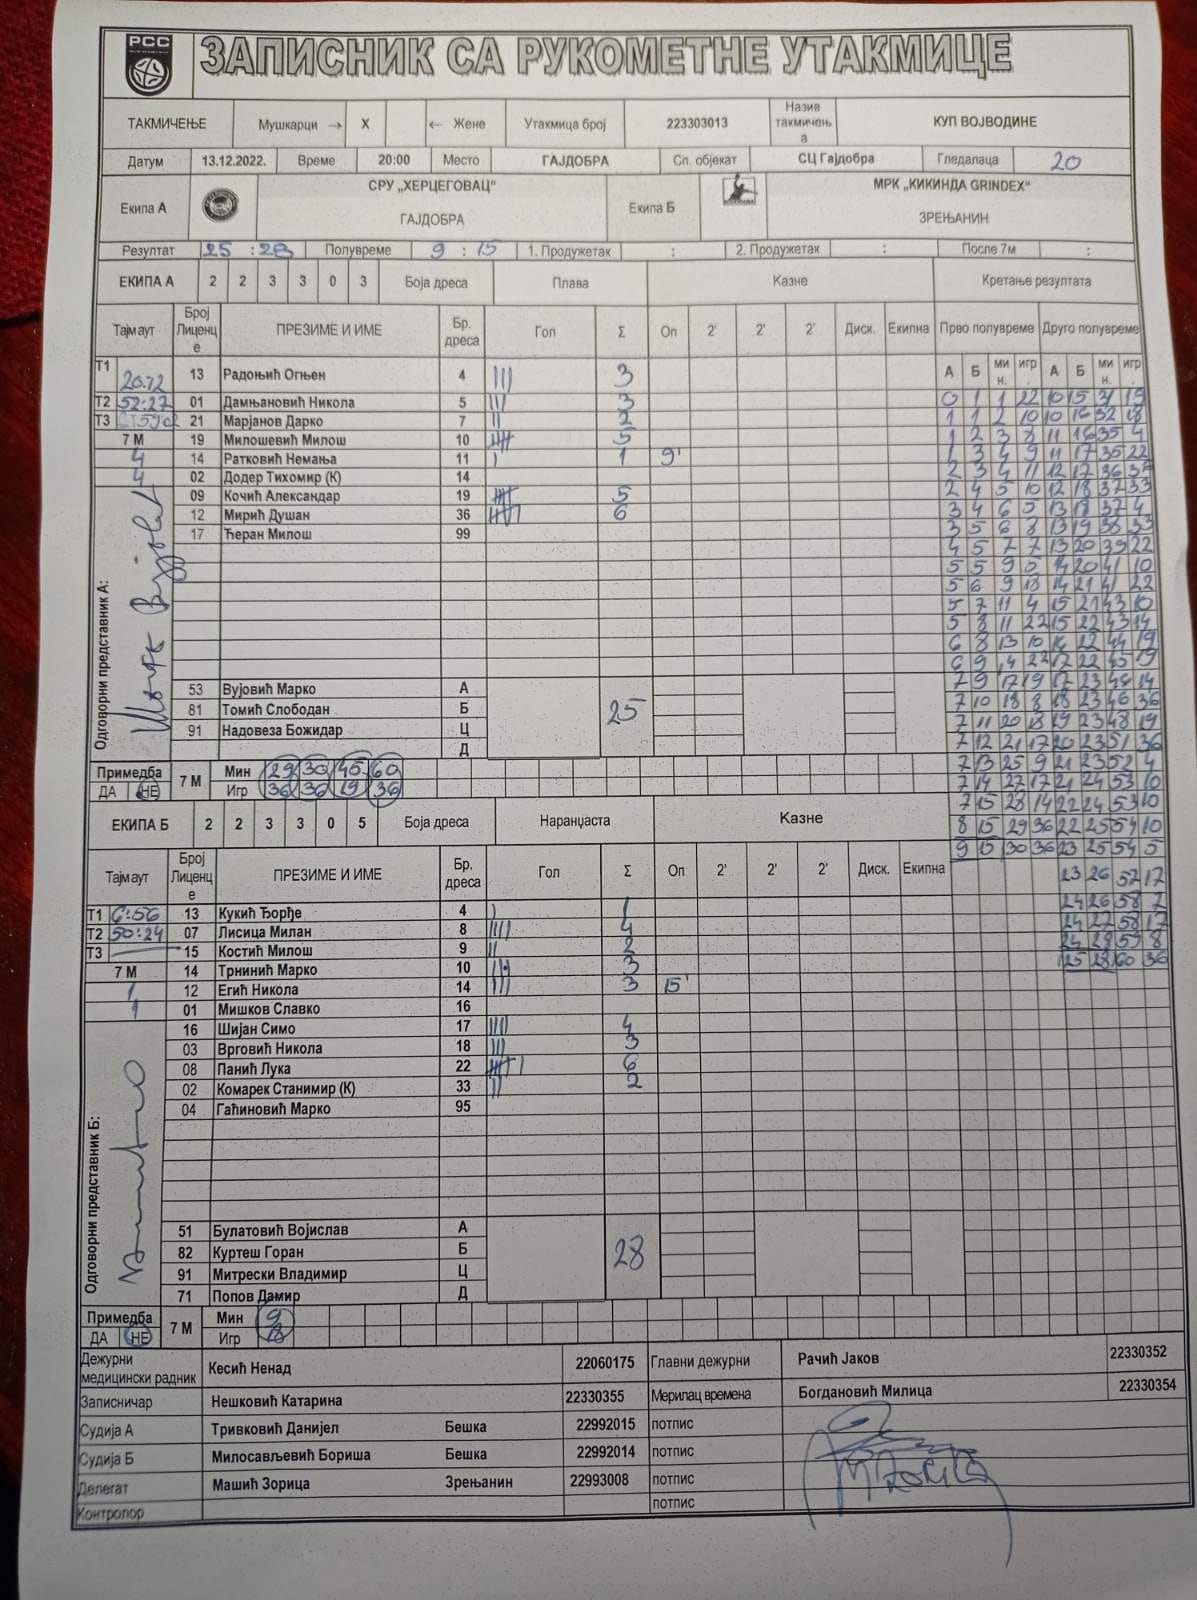 РСС
ЗАПИСНИК СА РУКОМЕТНЕ УТАКМИЦЕ
ТАКМИЧЕЊЕ Мушкарци → X ← Жене Утакмица број 223303013 Назив такмичења КУП ВОЈВОДИНЕ
Датум 13.12.2022. Време 20:00 Место ГАЈДОБРА Сп. објекат СЦ Гајдобра Гледалаца 20
Екипа А СРУ „ХЕРЦЕГОВАЦ“ ГАЈДОБРА Екипа Б МРК „КИКИНДА GRINDEX“ ЗРЕЊАНИН
Резултат 25 : 28 Полувреме 9 : 15 1. Продужетак : 2. Продужетак : После 7м :
ЕКИПА А 2 2 3 3 0 3 Боја дреса Плава Казне Кретање резултата
Тајмаут Број Лиценце ПРЕЗИМЕ И ИМЕ Бр. дреса Гол Σ Оп 2' 2' 2' Диск. Екипна Прво полувреме Друго полувреме
А Б мин. игр. А Б мин. игр.
Т1 13 Радоњић Огњен 4 III 3
Т2 52:27 01 Дамњановић Никола 5 III 3
Т3 21 Марјанов Дарко 7 II 2
7 М 19 Милошевић Милош 10 5
4 14 Ратковић Немања 11 I 1 9'
4 02 Додер Тихомир (К) 14
09 Кочић Александар 19 5
12 Мирић Душан 36 6
17 Ћеран Милош 99
Одговорни представник А:
53 Вујовић Марко А
81 Томић Слободан Б 25
91 Надовеза Божидар Ц
Д
Примедба ДА НЕ 7 М Мин 29 30 45 60
Игр 36 36 19 36
0 1 1 22 10 15 31 19
1 1 2 10 10 16 32 18
1 2 3 8 11 16 35 4
1 3 4 9 11 17 35 22
2 3 4 11 12 17 36
2 4 5 10 12 18 37 33
3 4 6 5 13 18 37 4
3 5 6 8 13 19 38 33
4 5 7 7 13 20 39 22
5 5 9 5 14 20 41 10
5 6 9 18 14 21 41 22
5 7 11 4 15 21 43 10
5 8 11 22 15 22 43 14
6 8 13 10 16 22 44 19
6 9 14 22 17 22 45 19
7 9 17 19 17 23 46 14
7 10 18 8 18 23 46 36
7 11 20 18 19 23 48 19
7 12 21 17 20 23 51 36
7 13 25 9 21 23 52 4
7 14 27 17 21 24 53 10
7 15 28 14 22 24 53 10
8 15 29 36 22 25 54 10
9 15 30 36 23 25 54 5
23 26 57 17
24 26 58 7
24 27 58 17
24 28 59 8
25 28 60 36
ЕКИПА Б 2 2 3 3 0 5 Боја дреса Наранџаста Казне
Тајмаут Број Лиценце ПРЕЗИМЕ И ИМЕ Бр. дреса Гол Σ Оп 2' 2' 2' Диск. Екипна
Т1 6:56 13 Кукић Ђорђе 4 I 1
Т2 50:24 07 Лисица Милан 8 IIII 4
Т3 15 Костић Милош 9 II 2
7 М 14 Трнинић Марко 10 III 3
1 12 Егић Никола 14 III 3 15'
1 01 Мишков Славко 16
16 Шијан Симо 17 IIII 4
03 Врговић Никола 18 III 3
08 Панић Лука 22 6
02 Комарек Станимир (К) 33 II 2
04 Гаћиновић Марко 95
Одговорни представник Б:
51 Булатовић Војислав А
82 Куртеш Горан Б 28
91 Митрески Владимир Ц
71 Попов Дамир Д
Примедба ДА НЕ 7 М Мин 9
Игр 18
Дежурни медицински радник Кесић Ненад 22060175 Главни дежурни Рачић Јаков 22330352
Записничар Нешковић Катарина 22330355 Мерилац времена Богдановић Милица 22330354
Судија А Тривковић Данијел Бешка 22992015 потпис
Судија Б Милосављевић Бориша Бешка 22992014 потпис
Делегат Машић Зорица Зрењанин 22993008 потпис
Контролор потпис